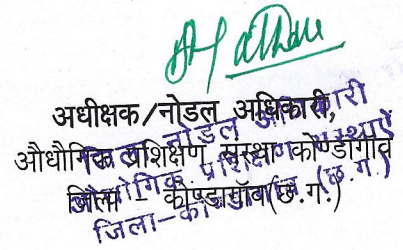 अधीक्षक/नोडल अधिकारी,
औधौगिक प्रशिक्षण संस्था कोण्डागॉव
जिला - कोण्डागॉव(छ.ग.)
नोडल अधिकारी
औद्योगिक प्रशिक्षण संस्थाऐं
जिला-कोण्डागॉव (छ.ग.)